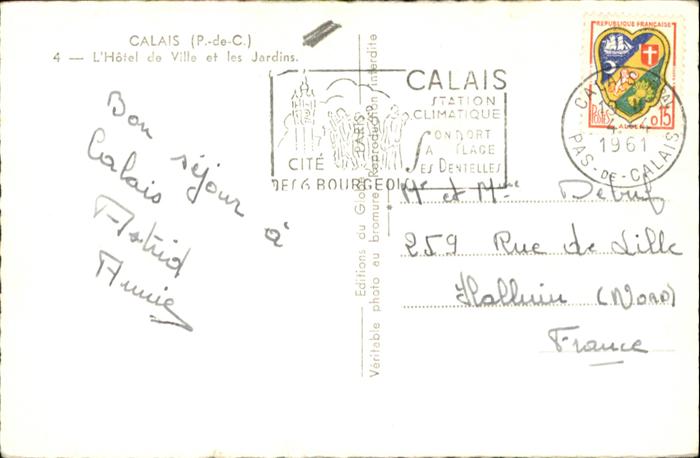 CALAIS (P.-de-C.)
4 — L'Hôtel de Ville et les Jardins.
Bon séjour à
Calais
Astrid
Annie
Editions du Globe PARIS
Véritable photo au bromure Reproduction interdite
CITÉ
DES 6 BOURGEOIS
CALAIS
STATION
CLIMATIQUE
SON PORT
SA PLAGE
SES DENTELLES
REPUBLIQUE FRANÇAISE
POSTES
ALGER
0,15
CALAIS
1961
PAS-DE-CALAIS
Mr et Mme Debuf
259 Rue de Lille
Halluin (Nord)
France